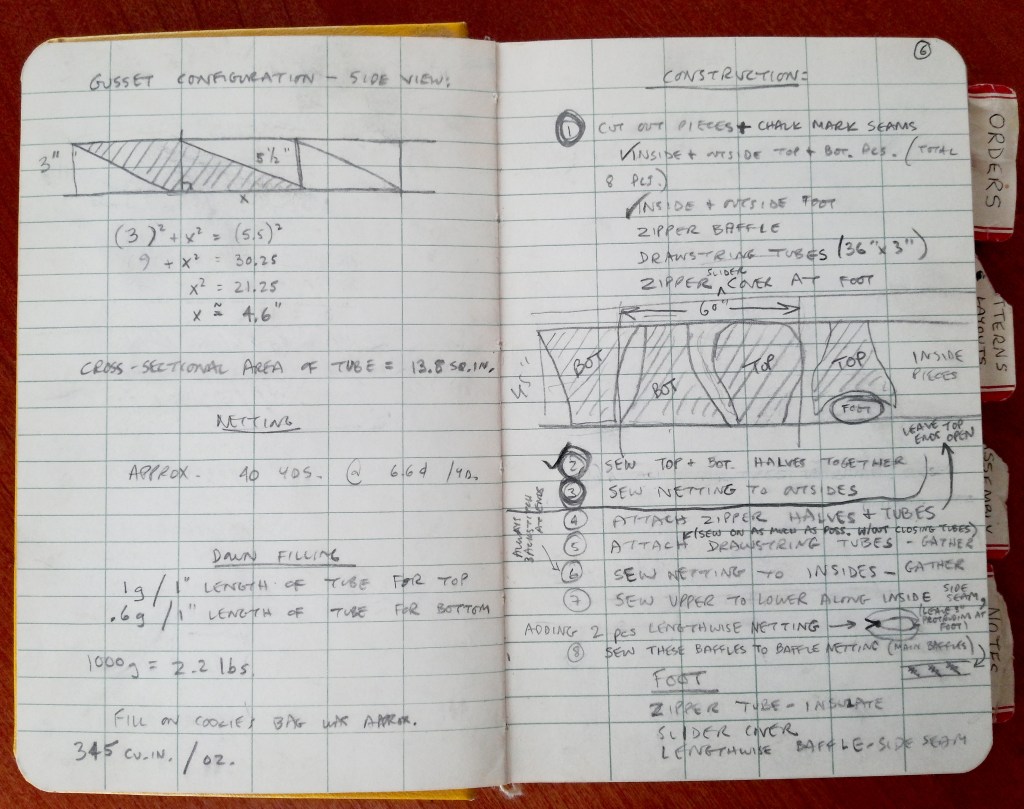 GUSSET CONFIGURATION - SIDE VIEW:
3"
5 1/2"
x
(3)² + x² = (5.5)²
9 + x² = 30.25
x² = 21.25
x ≅ 4.6"
CROSS-SECTIONAL AREA OF TUBE = 13.8 SQ.IN.
NETTING
APPROX. 40 YDS. @ 6.6¢ /YD.
DOWN FILLING
1g / 1" LENGTH OF TUBE FOR TOP
.6g / 1" LENGTH OF TUBE FOR BOTTOM
1000g = 2.2 lbs.
FILL ON COOKIES BAG WAS APPROX.
345 CU.IN. / OZ.
6
CONSTRUCTION:
1 CUT OUT PIECES + CHALK MARK SEAMS
✓INSIDE + OUTSIDE TOP + BOT. PCS. (TOTAL
8 PCS.)
✓INSIDE + OUTSIDE FOOT
ZIPPER BAFFLE
DRAWSTRING TUBES (36" x 3")
ZIPPER SLIDER COVER AT FOOT
60"
BOT
BOT
TOP
TOP
FOOT
INSIDE
PIECES
LEAVE TOP
ENDS OPEN
✓2 SEW TOP + BOT. HALVES TOGETHER
3 SEW NETTING TO OUTSIDES
ALWAYS
BACKSTITCH
AT ENDS
4 ATTACH ZIPPER HALVES + TUBES
(SEW ON AS MUCH AS POSS. W/OUT CLOSING TUBES)
5 ATTACH DRAWSTRING TUBES - GATHER
6 SEW NETTING TO INSIDES - GATHER
7 SEW UPPER TO LOWER ALONG INSIDE SIDE SEAM,
ADDING 2 pcs LENGTHWISE NETTING →
PROTRUDING AT
FOOT)
8 SEW THESE BAFFLES TO BAFFLE NETTING (MAIN BAFFLES)
FOOT
ZIPPER TUBE - INSULATE
SLIDER COVER
LENGTHWISE BAFFLE-SIDE SEAM
ORDERS
TTERNS
LAYOUTS
SSEMBLY
NOTES